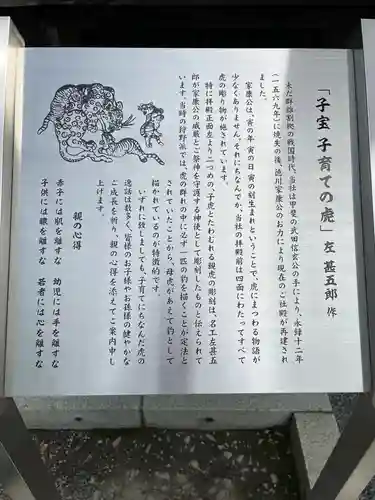 「子宝 子育ての虎」左 甚五郎 作
未だ群雄割拠の戦国時代、当社は甲斐の武田信玄公の手により、永禄十二年
(一五六九年)に焼失の後、徳川家康公のお力により現在のご社殿が再建され
ました。
家康公は、寅の年、寅の日、寅の刻生まれということで、虎にまつわる物語が
少なくありません。それにちなんでか、当社の拝殿前は四面にわたってすべて
虎の彫り物が施されています。
特に拝殿正面左より二つめの、子虎とたわむれる親虎の彫刻は、名工左甚五
郎が家康公の威厳とご祭神を守護する神使として彫刻したものと伝えられて
います。当時の狩野派では、虎の群れの中に必ず一匹の豹を描くことが定法と
されていたことから、母虎があえて豹として
描かれているのが特徴的です。
いずれに致しましても、子育てにちなんだ虎の
逸話は数多く、皆様のお子様やお孫様の健やかな
ご成長を祈り、親の心得を添えてご案内申し
上げます。
親の心得
赤子には肌を離すな 幼児には手を離すな
子供には眼を離すな 若者には心を離すな